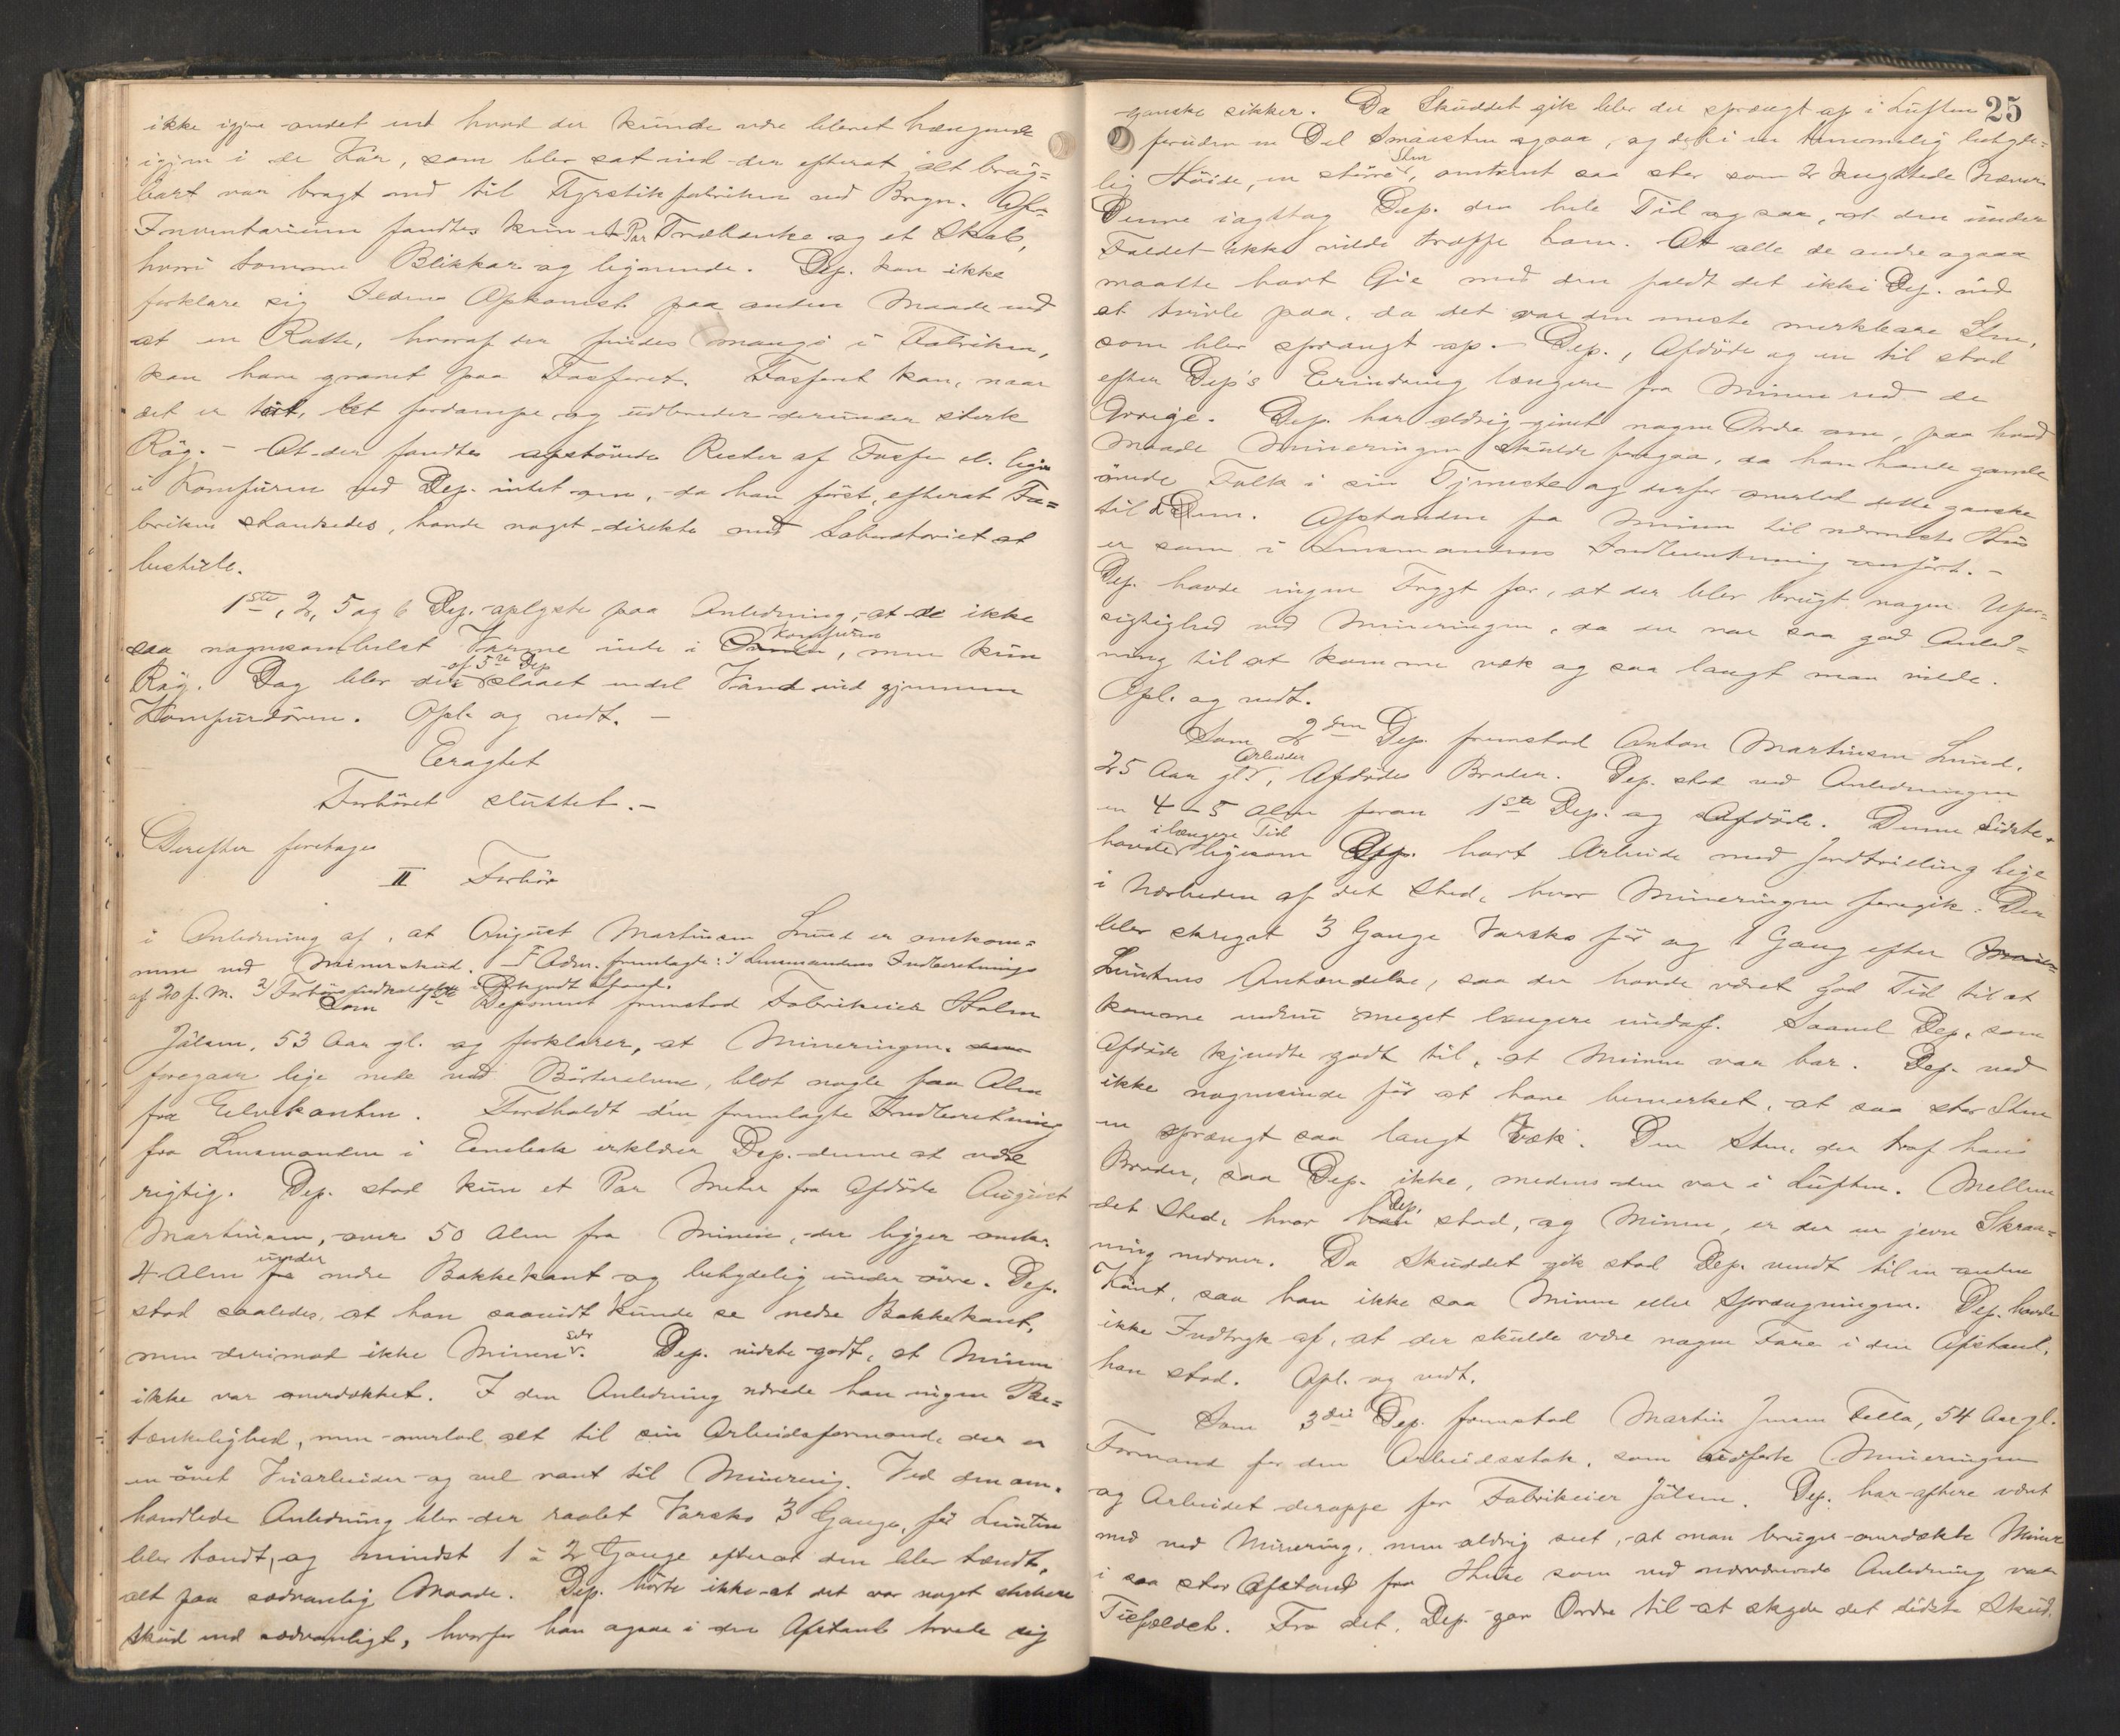 ikke igjen andet end hvad der kunde være blevet hængende
igjen i de Kar, som blev sat ind der efterat alt brug=
bart var bragt ned til Fyrstikfabriken ved Bryn. Af
Inventarium fandtes kun et Par Træbænke og et Skab,
hvori tomme Blikkar og lignende. Dep. kan ikke
forklare sig Ildens Opkomst paa anden Maade end
at en Rotte, hvoraf der findes mange i Fabriken,
kan have gnavet paa Fosforet. Fosforet kan, naar
det er tört, let fordampe og udbreder derunder sterk
Røg. - At der fandtes Rester af Fosfor el. lign
i Komfuren ved Dep. intet om, da han först, efterat Fa=
briken standsedes, havde noget direkte med Laboratoriet at
bestille.
1ste, 2, 5 og 6 Dep. oplyste paa Anledning, at de ikke
saa nogensomhelst Varme inde i Komfuren, men kun
Røg. Dog blev der af 5te Dep slaaet endel Vand ind gjennem
Komfurdören. Opl. og vedt. -
Eragtet
Forhöret sluttet. -
Derefter foretages
II Forhör
i Anledning af, at August Martinsen Lund er omkom=
men ved Mineskud. Adm. fremlagte: 1/ Lensmandens Indberetning
af 20 f. M. 2/
Som 1ste Deponent fremstod Fabrikeier Holm
Jölsen, 53 Aar gl. og forklarer, at Mineringen
foregaar lige nede ved Börterelven, blot nogle faa Alen
fra Elvekanten. Foreholdt den fremlagte Indberetning
fra Lensmanden i Enebak erklærer Dep. denne at være
rigtig. Dep. stod kun et Par Meter fra Afdöde August
Martinsen, over 50 Alen fra Minen, der ligger omtr.
4 Alen under nedre Bakkekant og betydelig under övre. Dep.
stod saaledes, at han saavidt kunde se nedre Bakkekant,
men derimod ikke Minen selv. Dep. vidste godt, at Minen
ikke var overdækket. I den Anledning nærede han ingen Be=
tænkelighed, men overlod alt til sin Arbeidsformand, der er
en övet Veiarbeider og vel vant til Minering. Ved den om=
handlede Anledning blev der raabt Varsko 3 Gange, för Lunten
blev tændt, og mindst 1 à 2 Gange efterat den blev tændt,
alt paa sædvanlig Maade. Dep. hörte ikke at det var noget sterkere
Skud end sædvanligt, hvorfor han ogsaa i den Afstand troede sig
25
ganske sikker. Da Skuddet gik blev der sprængt op i Luften
foruden en Del Smaasten ogsaa, og det i en temmelig betyde=
lig Höide, en större Sten, omtrent saa stor som 2 knyttede Næver.
Denne iagttog Dep. den hele Tid og saa, at den under
Faldet ikke vilde træffe ham. At alle de andre ogsaa
maatte havt Öie med den faldt det ikke Dep. ind
at tvivle paa, da det var den meste merkbare Sten,
som blev sprængt op. - Dep., Afdöde og en til stod
efter Dep's Erindring længere fra Minen end de
Övrige. Dep. har aldrig givet nogen Ordre om, paa hvad
Maade Mineringen skulde foregaa, da han havde gamle
övede Folk i sin Tjeneste og derfor overlod dette ganske
til Dem. Afstanden fra Minen til nærmeste Hus
er som i Lensmandens Indberetning anfört. -
Dep. havde ingen Frygt for, at der blev brugt nogen Ufor=
sigtighed ved Mineringen, da der var saa god Anled=
ning til at komme væk og saa langt man vilde.
Opl. og vedt.
Som 2den Dep. fremstod Anton Martinsen Lund,
25 Aar gl, Arbeider, Afdödes Broder. Dep. stod ved Anledningen
en 4-5 Alen foran 1ste Dep. og Afdöde. Denne Sidste
havde i længere Tid ligesom Dep. havt Arbeide med Jordtrilling lige
i Nærheden af det Sted, hvor Mineringen foregik. Der
blev skreget 3 Gange Varsko för og 1 Gang efter
Luntens Antændelse, saa der havde været god Tid til at
komme endnu meget længere undaf. Saavel Dep. som
Afdöde kjendte godt til, at Minen var bar. Dep. ved
ikke nogensinde för at have bemerket, at saa stor Sten
er sprængt saa langt væk. Den Sten, der traf hans
Broder, saa Dep. ikke, medens den var i Luften. Mellem
det Sted, hvor Dep. stod, og Minen, er der en jevn Skraa=
ning nedover. Da Skuddet gik stod Dep. vendt til en anden
Kant, saa han ikke saa Minen eller Sprængningen. Dep. havde
ikke Indtryk af, at der skulde være nogen Fare i den Afstand,
han stod. Opl. og vedt.
Som 3die Dep. fremstod Martin Jensen Fella, 54 Aar gl.
Formand for den Arbeidsstok, som udförte Mineringen
og Arbeidet deroppe for Fabrikeier Jölsen. Dep. har oftere været
med ved Minering, men aldrig seet, at man bruger overdækte Miner
i saa stor Afstand fra Huse som ved nærværende Anledning var
Tilfældet. Fra det, Dep. gav Ordre til at skyde det sidste Skud,